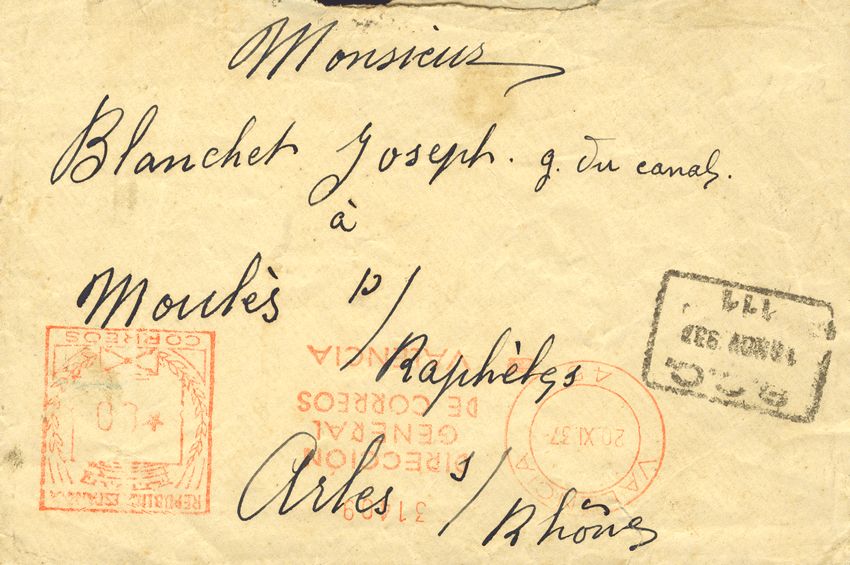 Monsieur
Blanchet Joseph. g. du canal.
à
Moulès p/
Raphèles
Arles s/
Rhône
CORREOS
REPUBLICA ESPAÑOLA
DIRECCIÓN
GENERAL
DE CORREOS
VALENCIA
VALENCIA
20.XI.37
18 NOV 937
111